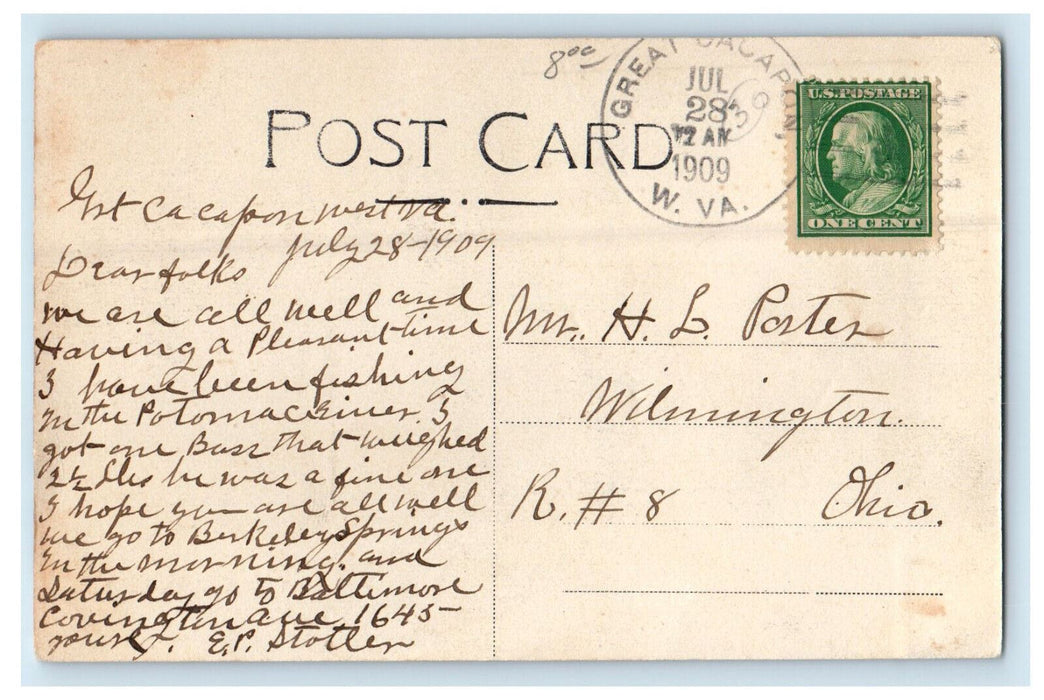 8 00
GREAT CACAPON,
JUL
28
12 AM
1909
W. VA.
U.S. POSTAGE
ONE CENT
POST CARD
Grt Cacapon West Va.
July 28-1909
Dear folks
we are all well and
Having a Pleasant time
I have been fishing
In the Potomac River. I
got one Bass that weighed
2½ lbs he was a fine one
I hope you are all well
we go to Berkeley Springs
In the morning. and
Saturday go to Baltimore
Covington Ave. 1645
E.P. Stotler
Mr. H. L. Porter
Wilmington.
R. # 8 Ohio.